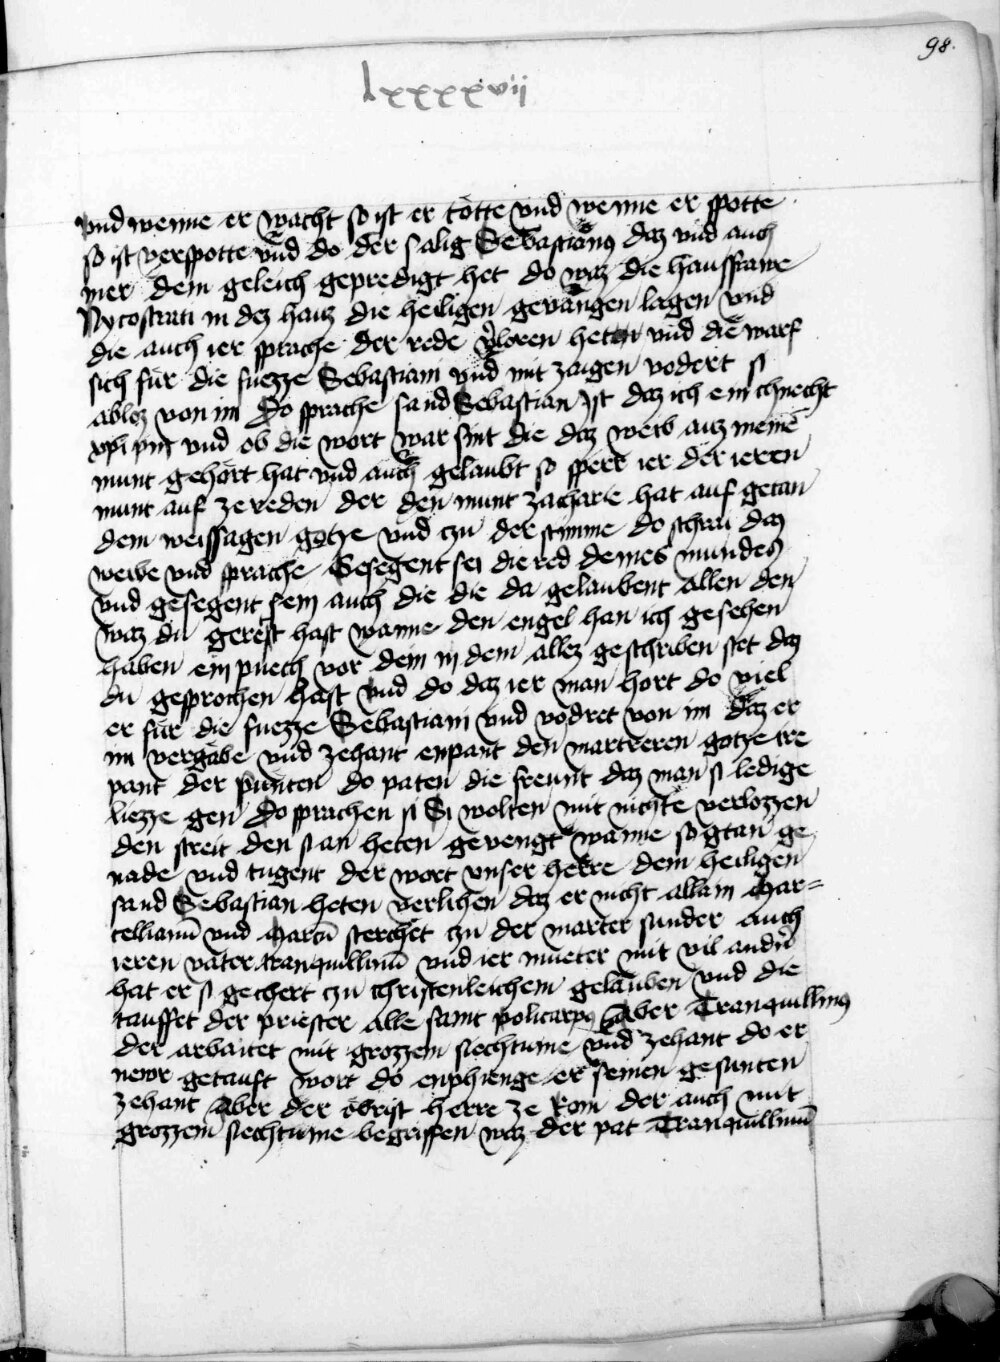 98.
lxxxxvii
vnd wenne er wacht so ist er tötte vnd wenne er spotte
so ist verspotte vnd do der salig Sebastianus daz vnd auch
mer dem geleich gepredigt het do waz die hausfrawe
Nycostrati in dez hauz die heiligen gevangen lagen vnd
die auch ier sprache der rede v̓loren heten vnd die warf
sich für die fuezze Sebastiani vnd mit zaigen vodert si
abloz von im Do sprache sand Sebastian Ist daz ich ein chnecht
xpi pin vnd ob die wort war sint die daz weib auz meinē
munt gehört hat vnd auch gelaubt so sperr ier der ieren
munt auf ze reden der den munt zacharie hat auf getan
dem weissagen gotze vnd czu der stimme do schrai daz
weibe vnd sprache Gesegent sei die red deines mundes
vnd gesegent sein auch die die da gelaubent allen den
waz du gerest hast wanne den engel han ich gesehen
haben ein puech vor dem in dem allez geschriben stet daz
du gesprochen hast vnd do daz ier man hort do viel
er für die fuezze Sebastiani vnd vodret von im daz er
im vergabe vnd zehant enpant den martreren gotze ire
pant der punten do paten die freunt daz man si ledige
liezze gen Do sprachen si Si wolten mit nichte verlozzen
den streit den si an heten gevengt wanne so gtan ge
nade vnd tugent der wort vnser herre dem heiligen
sand Sebastian heten verlihen daz er nicht allain Mar=
cellianū vnd Marcū sterchet czu der marter sunder auch
ieren vater tranquillinū vnd ier mueter mit vil andn̓
hat er si gechert czu christenleichem gelauben vnd die
tauffet der priester alle samt policarpus Aber Tranquillinus
der arbaitet mit grozzem siechtume vnd zehant do er
newr getauft wort do enphienge er seinen gesunten
zehant Aber der obrist herre ze Rom der auch mit
grozzem siechtume begriffen waz der pat Tranquillinū